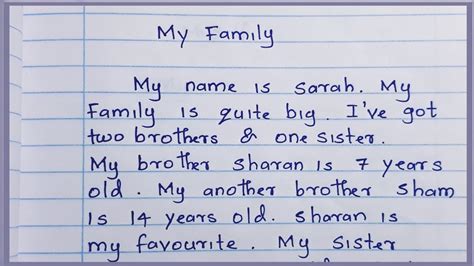 My Family
My name is Sarah. My
Family is quite big. I've got
two brothers & one sister.
My brother Sharan is 7 years
old. My another brother sham
is 14 years old. Sharan is
my favourite. My sister